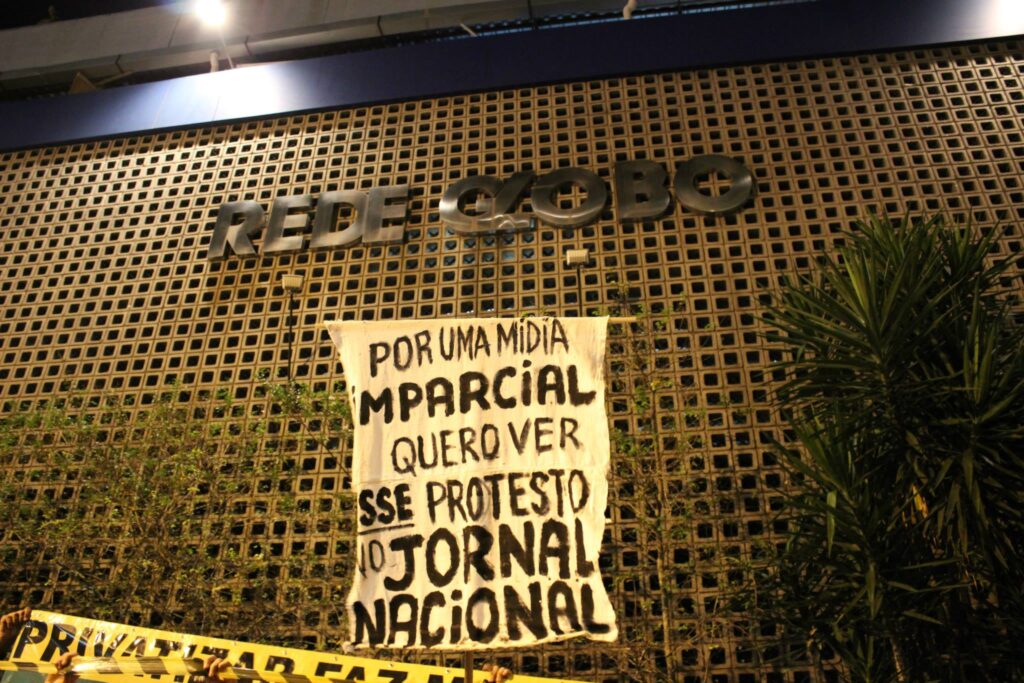 REDE GLOBO
POR UMA MÍDIA
IMPARCIAL
QUERO VER
ESSE PROTESTO
NO JORNAL
NACIONAL
PRIVATIZAR FAZ